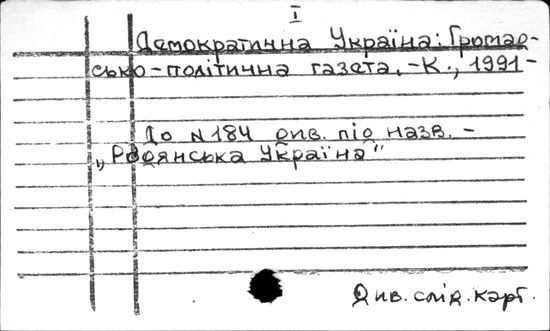 I
Демократична Україна: Громад-
сько-політична газета. -К., 1991-
До N184 див. під назв. -
„Радянська Україна"
Див. слід. карт.